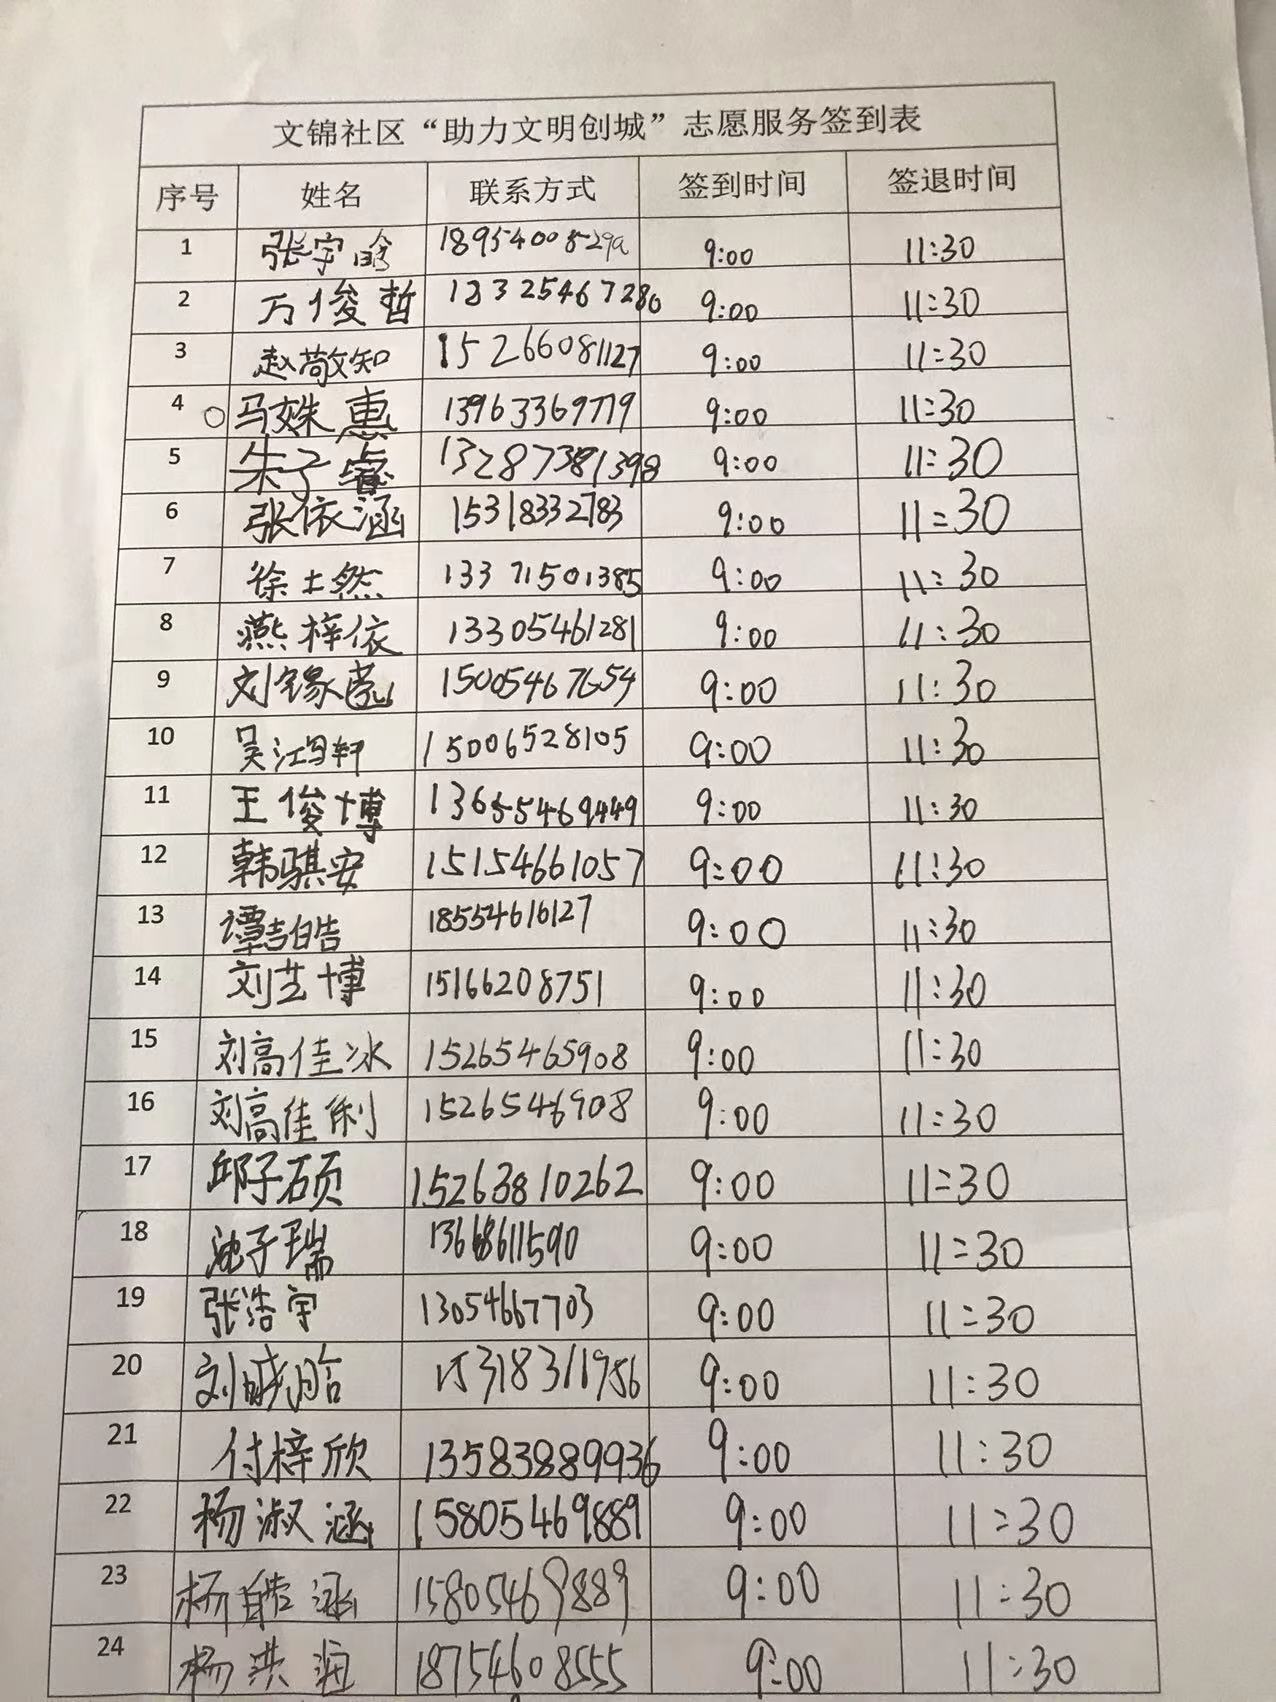 文锦社区“助力文明创城”志愿服务签到表
序号 姓名 联系方式 签到时间 签退时间
1 张宇晗 9:00 11:30
2 万俊哲 18325467280 9:00 11:30
3 赵敬知 15266081127 9:00 11:30
4 马姝惠 13963369779 9:00 11:30
5 朱子睿 13287381398 9:00 11:30
6 张依涵 15318332783 9:00 11:30
7 徐士然 13371501385 9:00 11:30
8 燕梓依 13305461281 9:00 11:30
9 15005467654 9:00 11:30
10 15006528105 9:00 11:30
11 王俊博 13655469449 9:00 11:30
12 韩骐安 15154661057 9:00 11:30
13 18554616127 9:00 11:30
14 刘芝博 15166208751 9:00 11:30
15 刘高佳冰 15265465908 9:00 11:30
16 刘高佳俐 1526546908 9:00 11:30
17 邱子硕 15263810262 9:00 11:30
18 池子瑞 13668611590 9:00 11:30
19 张浩宇 13054667703 9:00 11:30
20 15318311956 9:00 11:30
21 付梓欣 13583889936 9:00 11:30
22 杨淑涵 15805469889 9:00 11:30
23 杨皓涵 15805469889 9:00 11:30
24 杨洪润 18754608555 9:00 11:30